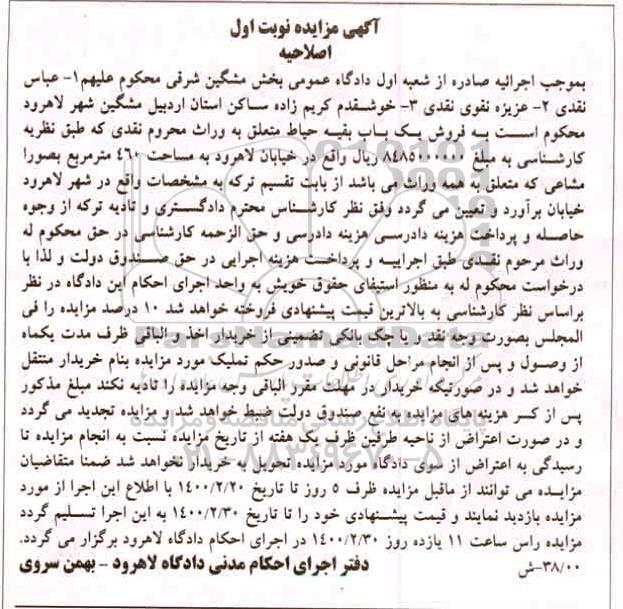 آگهی مزایده نوبت اول
اصلاحیه
بموجب اجرائیه صادره از شعبه اول دادگاه عمومی بخش مشگین شرقی محکوم علیهم۱- عباس
نقدی ۲- عزیزه نقوی نقدی ۳- خوشقدم کریم زاده ساکن استان اردبیل مشگین شهر لاهرود
محکوم است به فروش یک باب بقیه حیاط متعلق به وراث محروم نقدی که طبق نظریه
کارشناسی به مبلغ ۸۴۸۵۰۰۰۰۰۰ ریال واقع در خیابان لاهرود به مساحت ۴۶۰ مترمربع بصورا
مشاعی که متعلق به همه وراث می باشد از بابت تقسیم ترکه به مشخصات واقع در شهر لاهرود
خیابان برآورد و تعیین می گردد وفق نظر کارشناس محترم دادگستری و تادیه ترکه از وجوه
حاصله و پرداخت هزینه دادرسی هزینه دادرسی و حق الزحمه کارشناسی در حق محکوم له
وراث مرحوم نقدی طبق اجراییه و پرداخت هزینه اجرایی در حق صندوق دولت و لذا با
درخواست محکوم له به منظور استیفای حقوق خویش به واحد اجرای احکام این دادگاه در نظر
براساس نظر کارشناسی به بالاترین قیمت پیشنهادی فروخته خواهد شد ۱۰ درصد مزایده را فی
المجلس بصورت وجه نقد و یا چک بانکی تضمینی از خریدار اخذ و الباقی ظرف مدت یکماه
از وصول و پس از انجام مراحل قانونی و صدور حکم تملیک مورد مزایده بنام خریدار منتقل
خواهد شد و در صورتیکه خریدار در مهلت مقرر الباقی وجه مزایده را تادیه نکند مبلغ مذکور
پس از کسر هزینه های مزایده به نفع صندوق دولت ضبط خواهد شد و مزایده تجدید می گردد
و در صورت اعتراض از ناحیه طرفین ظرف یک هفته از تاریخ مزایده نسبت به انجام مزایده تا
رسیدگی به اعتراض از سوی دادگاه مورد مزایده تحویل به خریدار نخواهد شد ضمنا متقاضیان
مزایده می توانند از ماقبل مزایده ظرف ۵ روز تا تاریخ ۱۴۰۰/۲/۲۰ با اطلاع این اجرا از مورد
مزایده بازدید نمایند و قیمت پیشنهادی خود را تا تاریخ ۱۴۰۰/۲/۳۰ به این اجرا تسلیم گردد
مزایده راس ساعت ۱۱ یازده روز ۱۴۰۰/۲/۳۰ در اجرای احکام دادگاه لاهرود برگزار می گردد.
۳۸/۰۰-ش
دفتر اجرای احکام مدنی دادگاه لاهرود - بهمن سروی
ParsNamadData
پایگاه اطلاع رسانی مناقصه و مزایده
۰۲۱-۸۸۳۴۹۶۷۰-۵